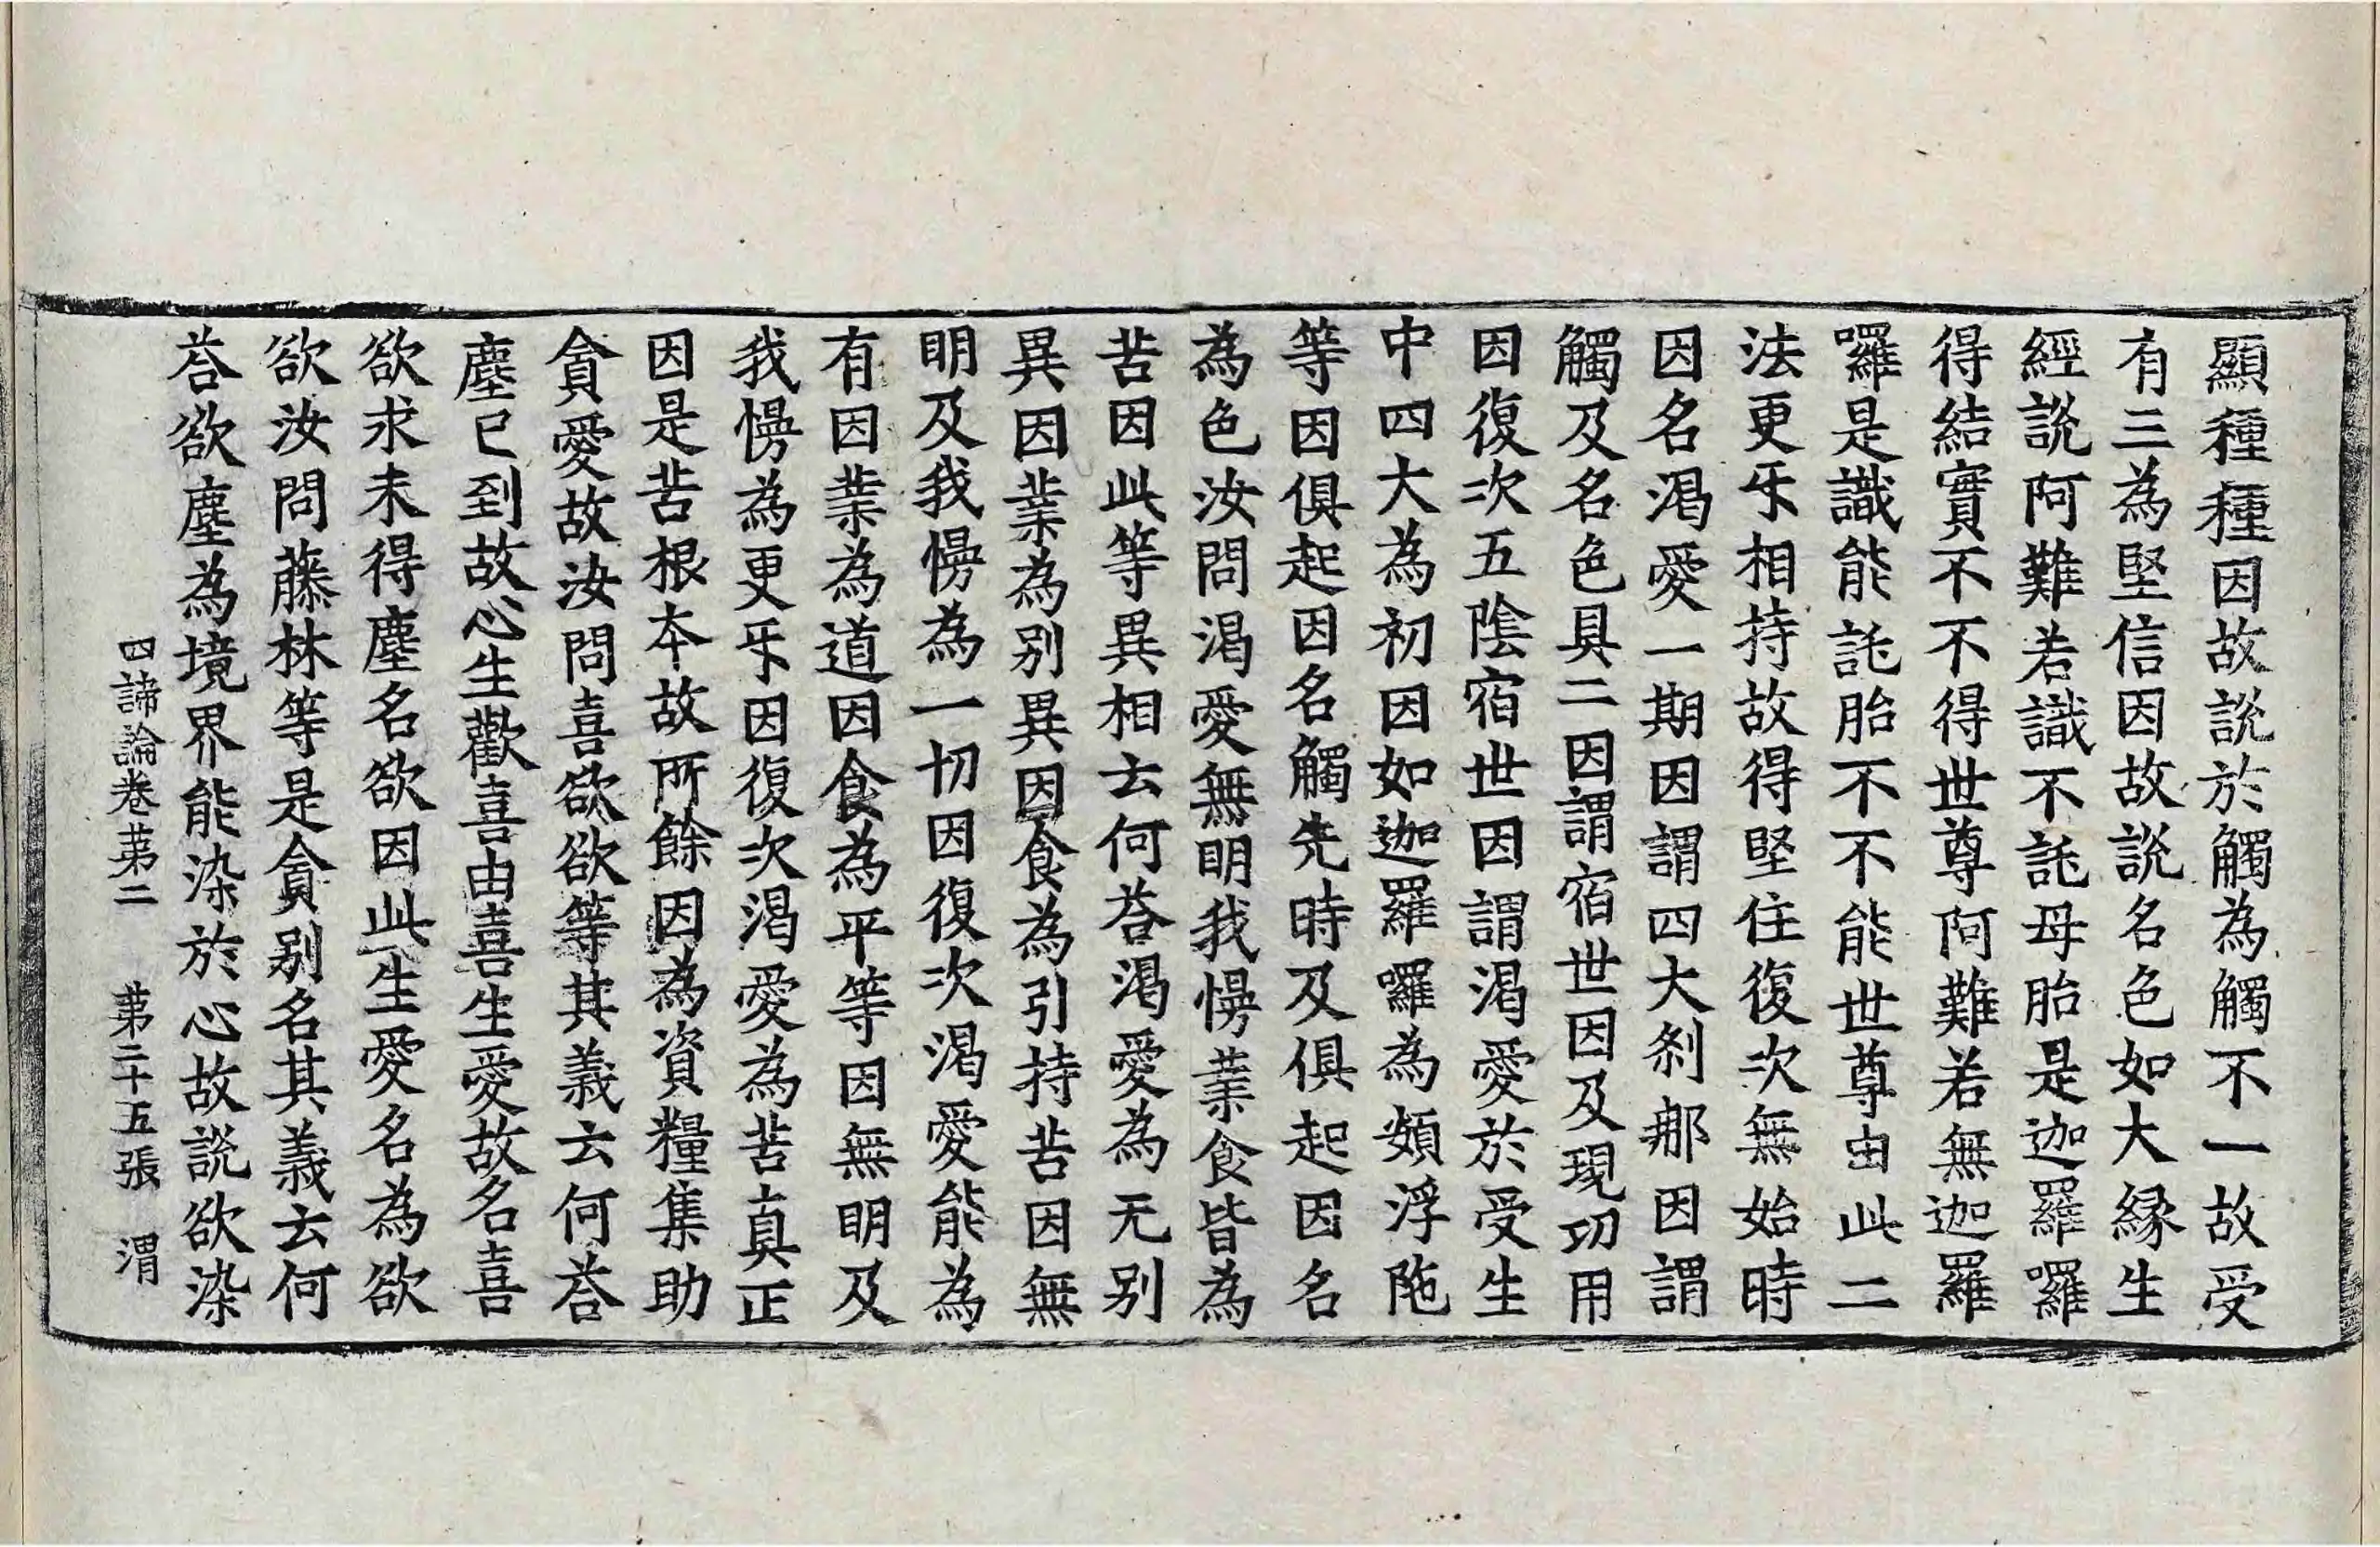 顯種種因故說於觸為觸不一故受
有三為堅信因故說名色如大緣生
經說阿難若識不託母胎是迦羅囉
得結實不不得世尊阿難若無迦羅
囉是識能託胎不不能世尊由此二
法更乐相持故得堅住復次無始時
因名渴愛一期因謂四大剎那因謂
觸及名色具二因謂宿世因及現功用
因復次五陰宿世因謂渴愛於受生
中四大為初因如迦羅囉為頞浮陁
等因俱起因名觸先時及俱起因名
為色汝問渴愛無明我慢業食皆為
苦因此等異相云何荅渴愛為无别
異因業為别異因食為引持苦因無
明及我慢為一切因復次渴愛能為
有因業為道因食為平等因無明及
我慢為更乐因復次渴愛為苦真正
因是苦根本故所餘因為資糧集助
貪愛故汝問喜欲欲等其義云何荅
塵已到故心生歡喜由喜生愛故名喜
欲求未得塵名欲因此生愛名為欲
欲汝問藤林等是貪别名其義云何
荅欲塵為境界能染於心故說欲染
四諦論卷苐二 苐二十五張 渭